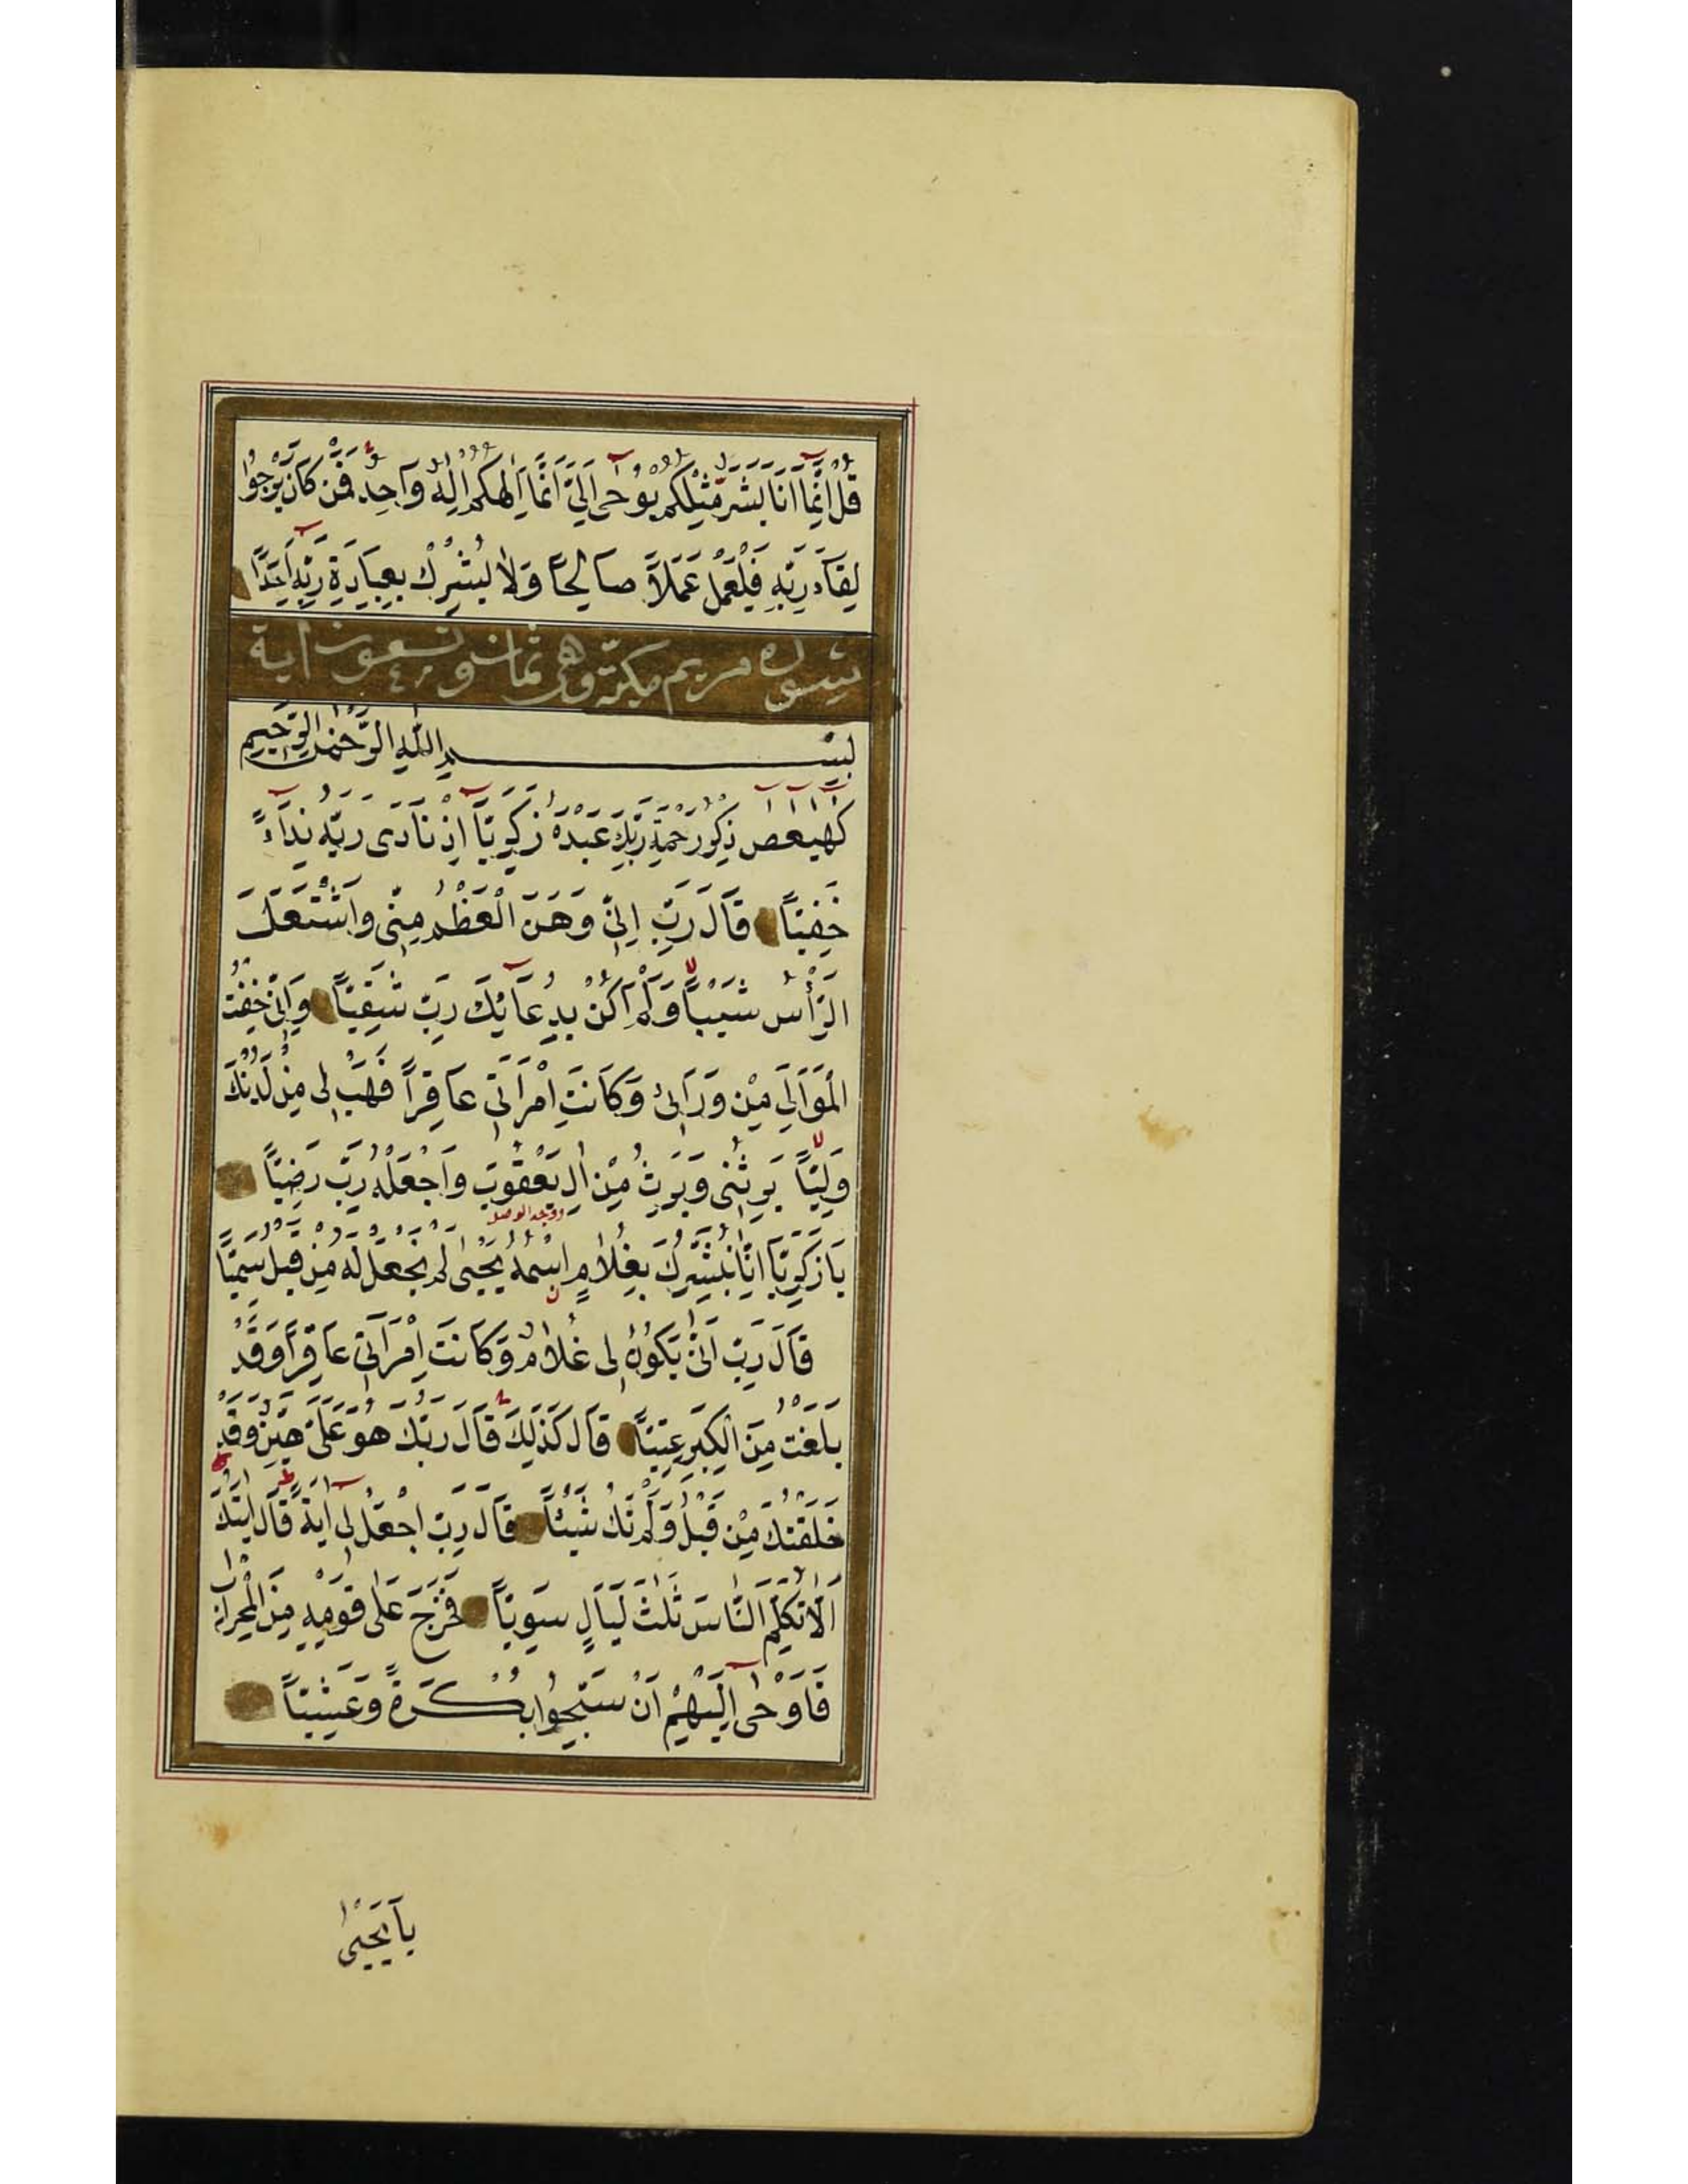 قُلْ اِنَّمَا اَنَا بَشَرٌ مِّثْلُكُمْ يُوحٰى اِلَيَّ اَنَّمَا اِلٰهُكُمْ اِلٰهٌ وَاحِدٌ فَمَنْ كَانَ يَرْجُوا
لِقَاءَ رَبِّهِ فَلْيَعْمَلْ عَمَلًا صَالِحًا وَلَا يُشْرِكْ بِعِبَادَةِ رَبِّهِ اَحَدًا
سورة مريم مكية وهى ثمان وتسعون اية
بِسْمِ اللّٰهِ الرَّحْمٰنِ الرَّحِيمِ
كهيعص ذِكْرُ رَحْمَةِ رَبِّكَ عَبْدَهُ زَكَرِيَّا اِذْ نَادٰى رَبَّهُ نِدَاءً
خَفِيًّا قَالَ رَبِّ اِنِّى وَهَنَ الْعَظْمُ مِنِّى وَاشْتَعَلَ
الرَّأْسُ شَيْبًا وَلَمْ اَكُنْ بِدُعَائِكَ رَبِّ شَقِيًّا وَاِنِّى خِفْتُ
الْمَوَالِيَ مِنْ وَرَائِى وَكَانَتِ امْرَاَتِى عَاقِرًا فَهَبْ لِى مِنْ لَدُنْكَ
وَلِيًّا يَرِثُنِى وَيَرِثُ مِنْ اٰلِ يَعْقُوبَ وَاجْعَلْهُ رَبِّ رَضِيًّا
يَا زَكَرِيَّا اِنَّا نُبَشِّرُكَ بِغُلَامٍ اسْمُهُ يَحْيٰى لَمْ نَجْعَلْ لَهُ مِنْ قَبْلُ سَمِيًّا
قَالَ رَبِّ اَنّٰى يَكُونُ لِى غُلَامٌ وَكَانَتِ امْرَاَتِى عَاقِرًا وَقَدْ
بَلَغْتُ مِنَ الْكِبَرِ عِتِيًّا قَالَ كَذٰلِكَ قَالَ رَبُّكَ هُوَ عَلَيَّ هَيِّنٌ وَقَدْ
خَلَقْتُكَ مِنْ قَبْلُ وَلَمْ تَكُ شَيْئًا قَالَ رَبِّ اجْعَلْ لِى اٰيَةً قَالَ اٰيَتُكَ
اَلَّا تُكَلِّمَ النَّاسَ ثَلٰثَ لَيَالٍ سَوِيًّا فَخَرَجَ عَلٰى قَوْمِهِ مِنَ الْمِحْرَابِ
فَاَوْحٰى اِلَيْهِمْ اَنْ سَبِّحُوا بُكْرَةً وَعَشِيًّا
يَا يَحْيٰى